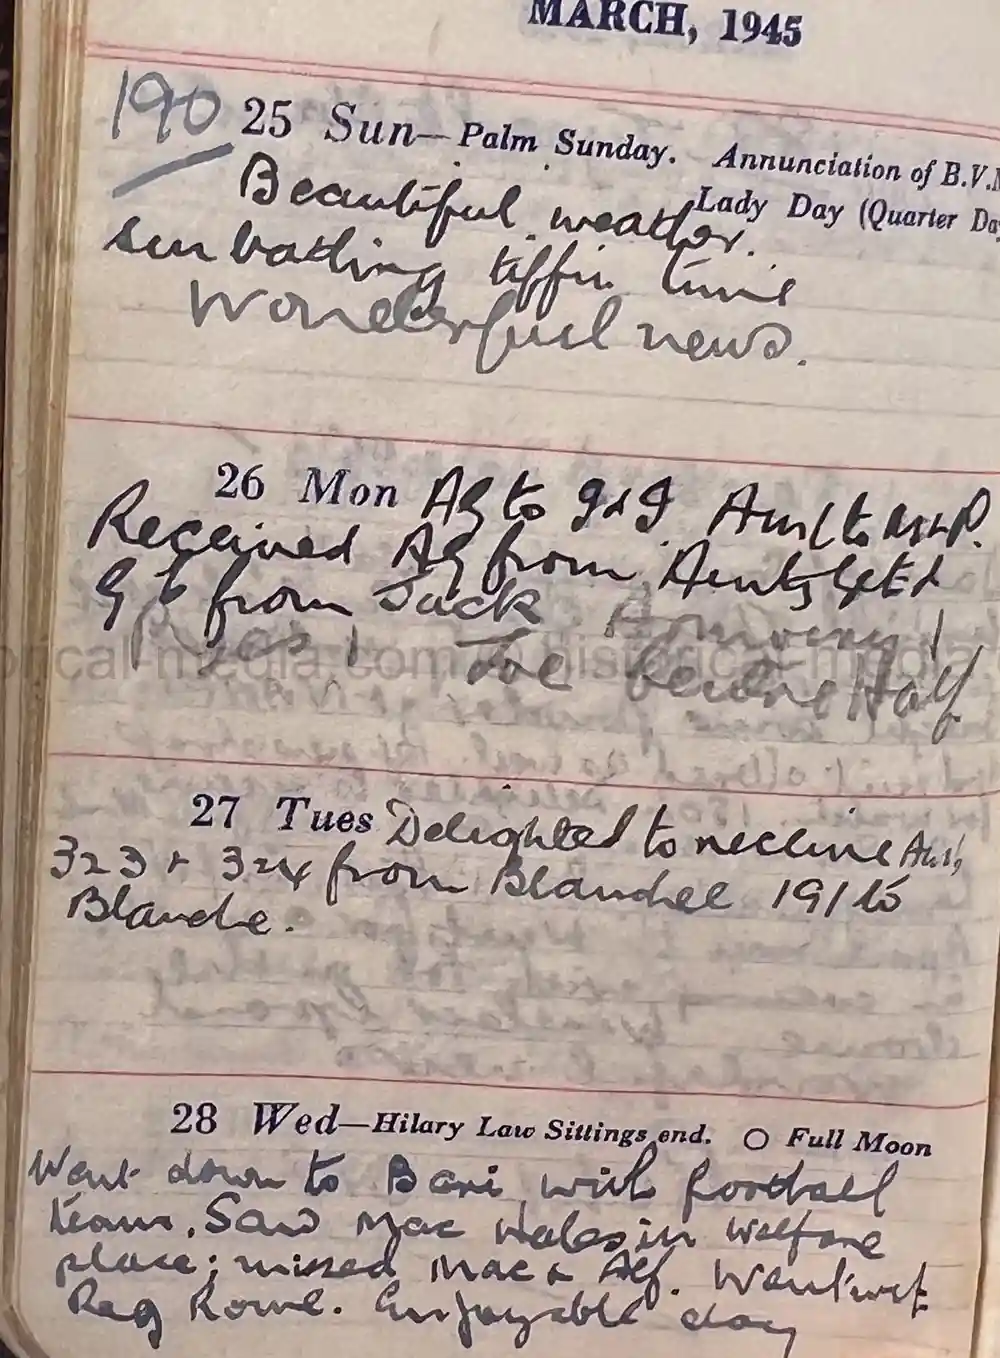 MARCH, 1945
190 25 Sun—Palm Sunday. Annunciation of B.V.M
Lady Day (Quarter Da
Beautiful weather.
sun bathing tiffin time
Wonderful news.
26 Mon Ag to G & G. Aml to
Received Ag from Aunty Get &
G b from Jack
Joe
Half
27 Tues Delighted to receive
323 + 324 from Blanche 191 to
Blanche.
28 Wed—Hilary Law Sittings end. ○ Full Moon
Went down to Bari with football
teams. Saw Mac Hales in welfare
place; missed Mac & Alf. Went with
Reg Rowe. Enjoyable day